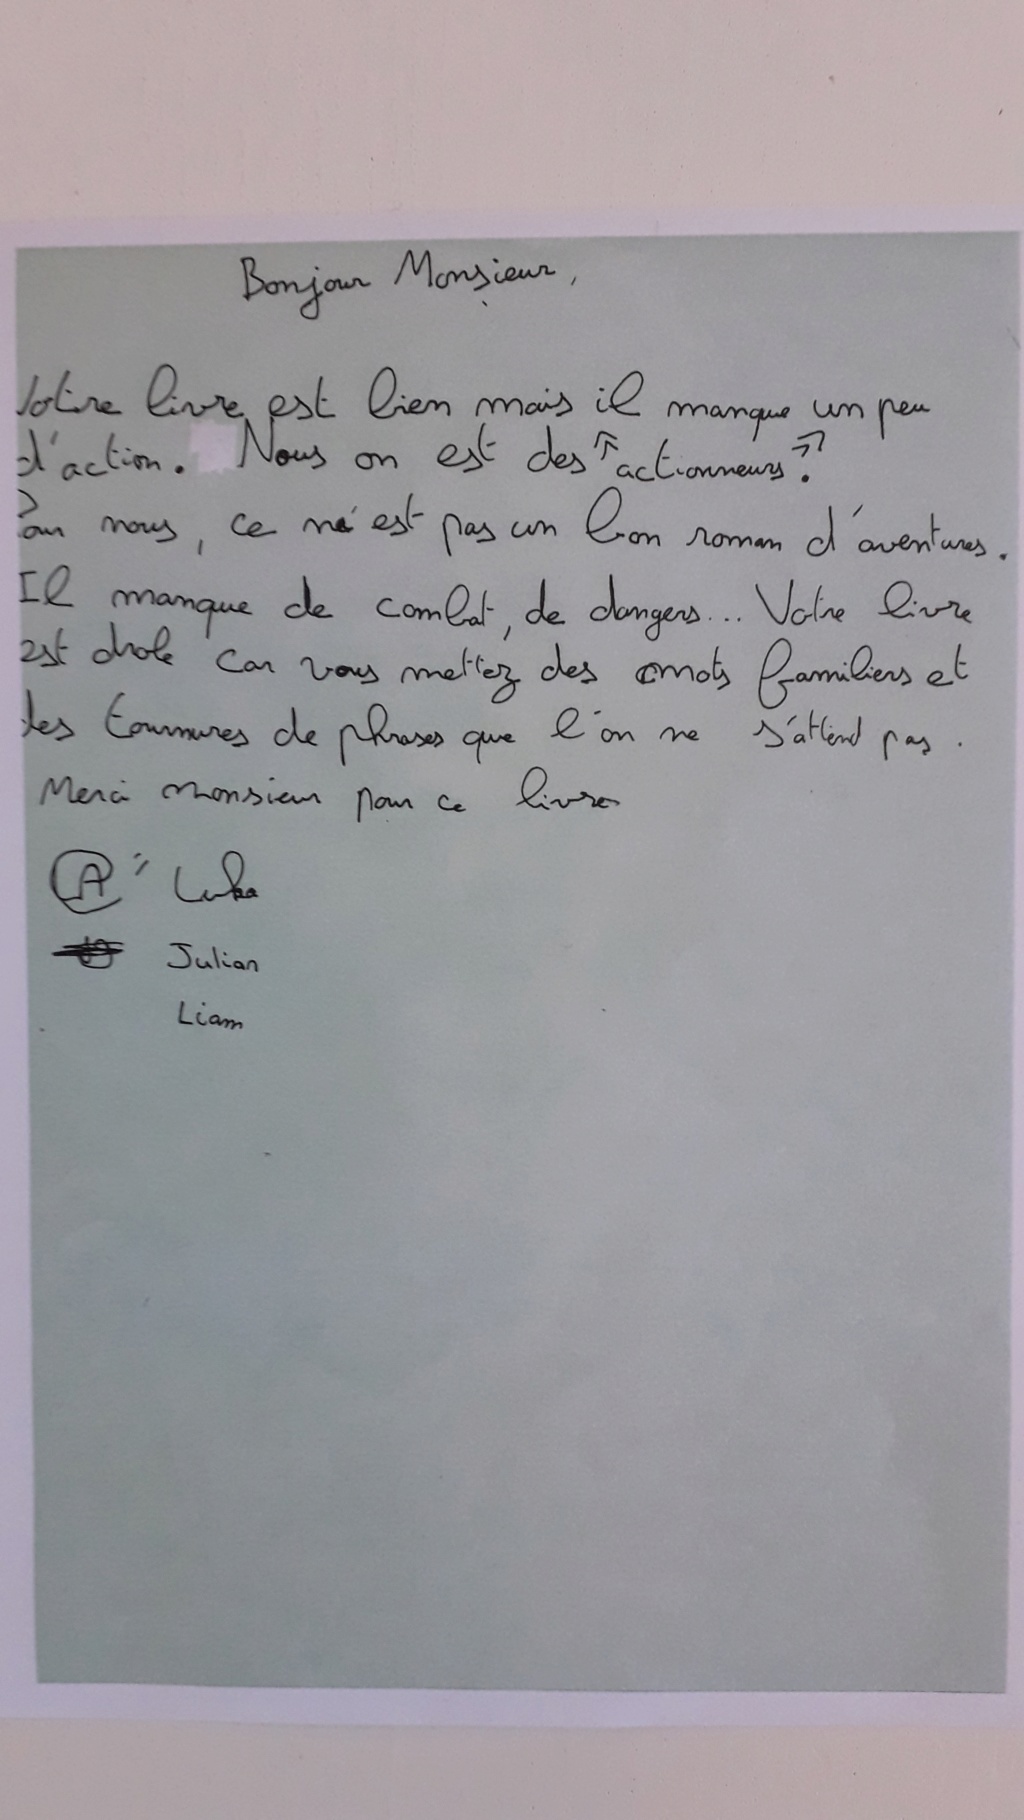 Bonjour Monsieur,
Votre livre est bien mais il manque un peu
d'action. Nous on est des "actionneurs".
Pour nous, ce n'est pas un bon roman d'aventures.
Il manque de combat, de dangers... Votre livre
est drole car vous mettez des mots familiers et
des tournures de phrases que l'on ne s'attend pas.
Merci monsieur pour ce livre
A Luka
Julian
Liam